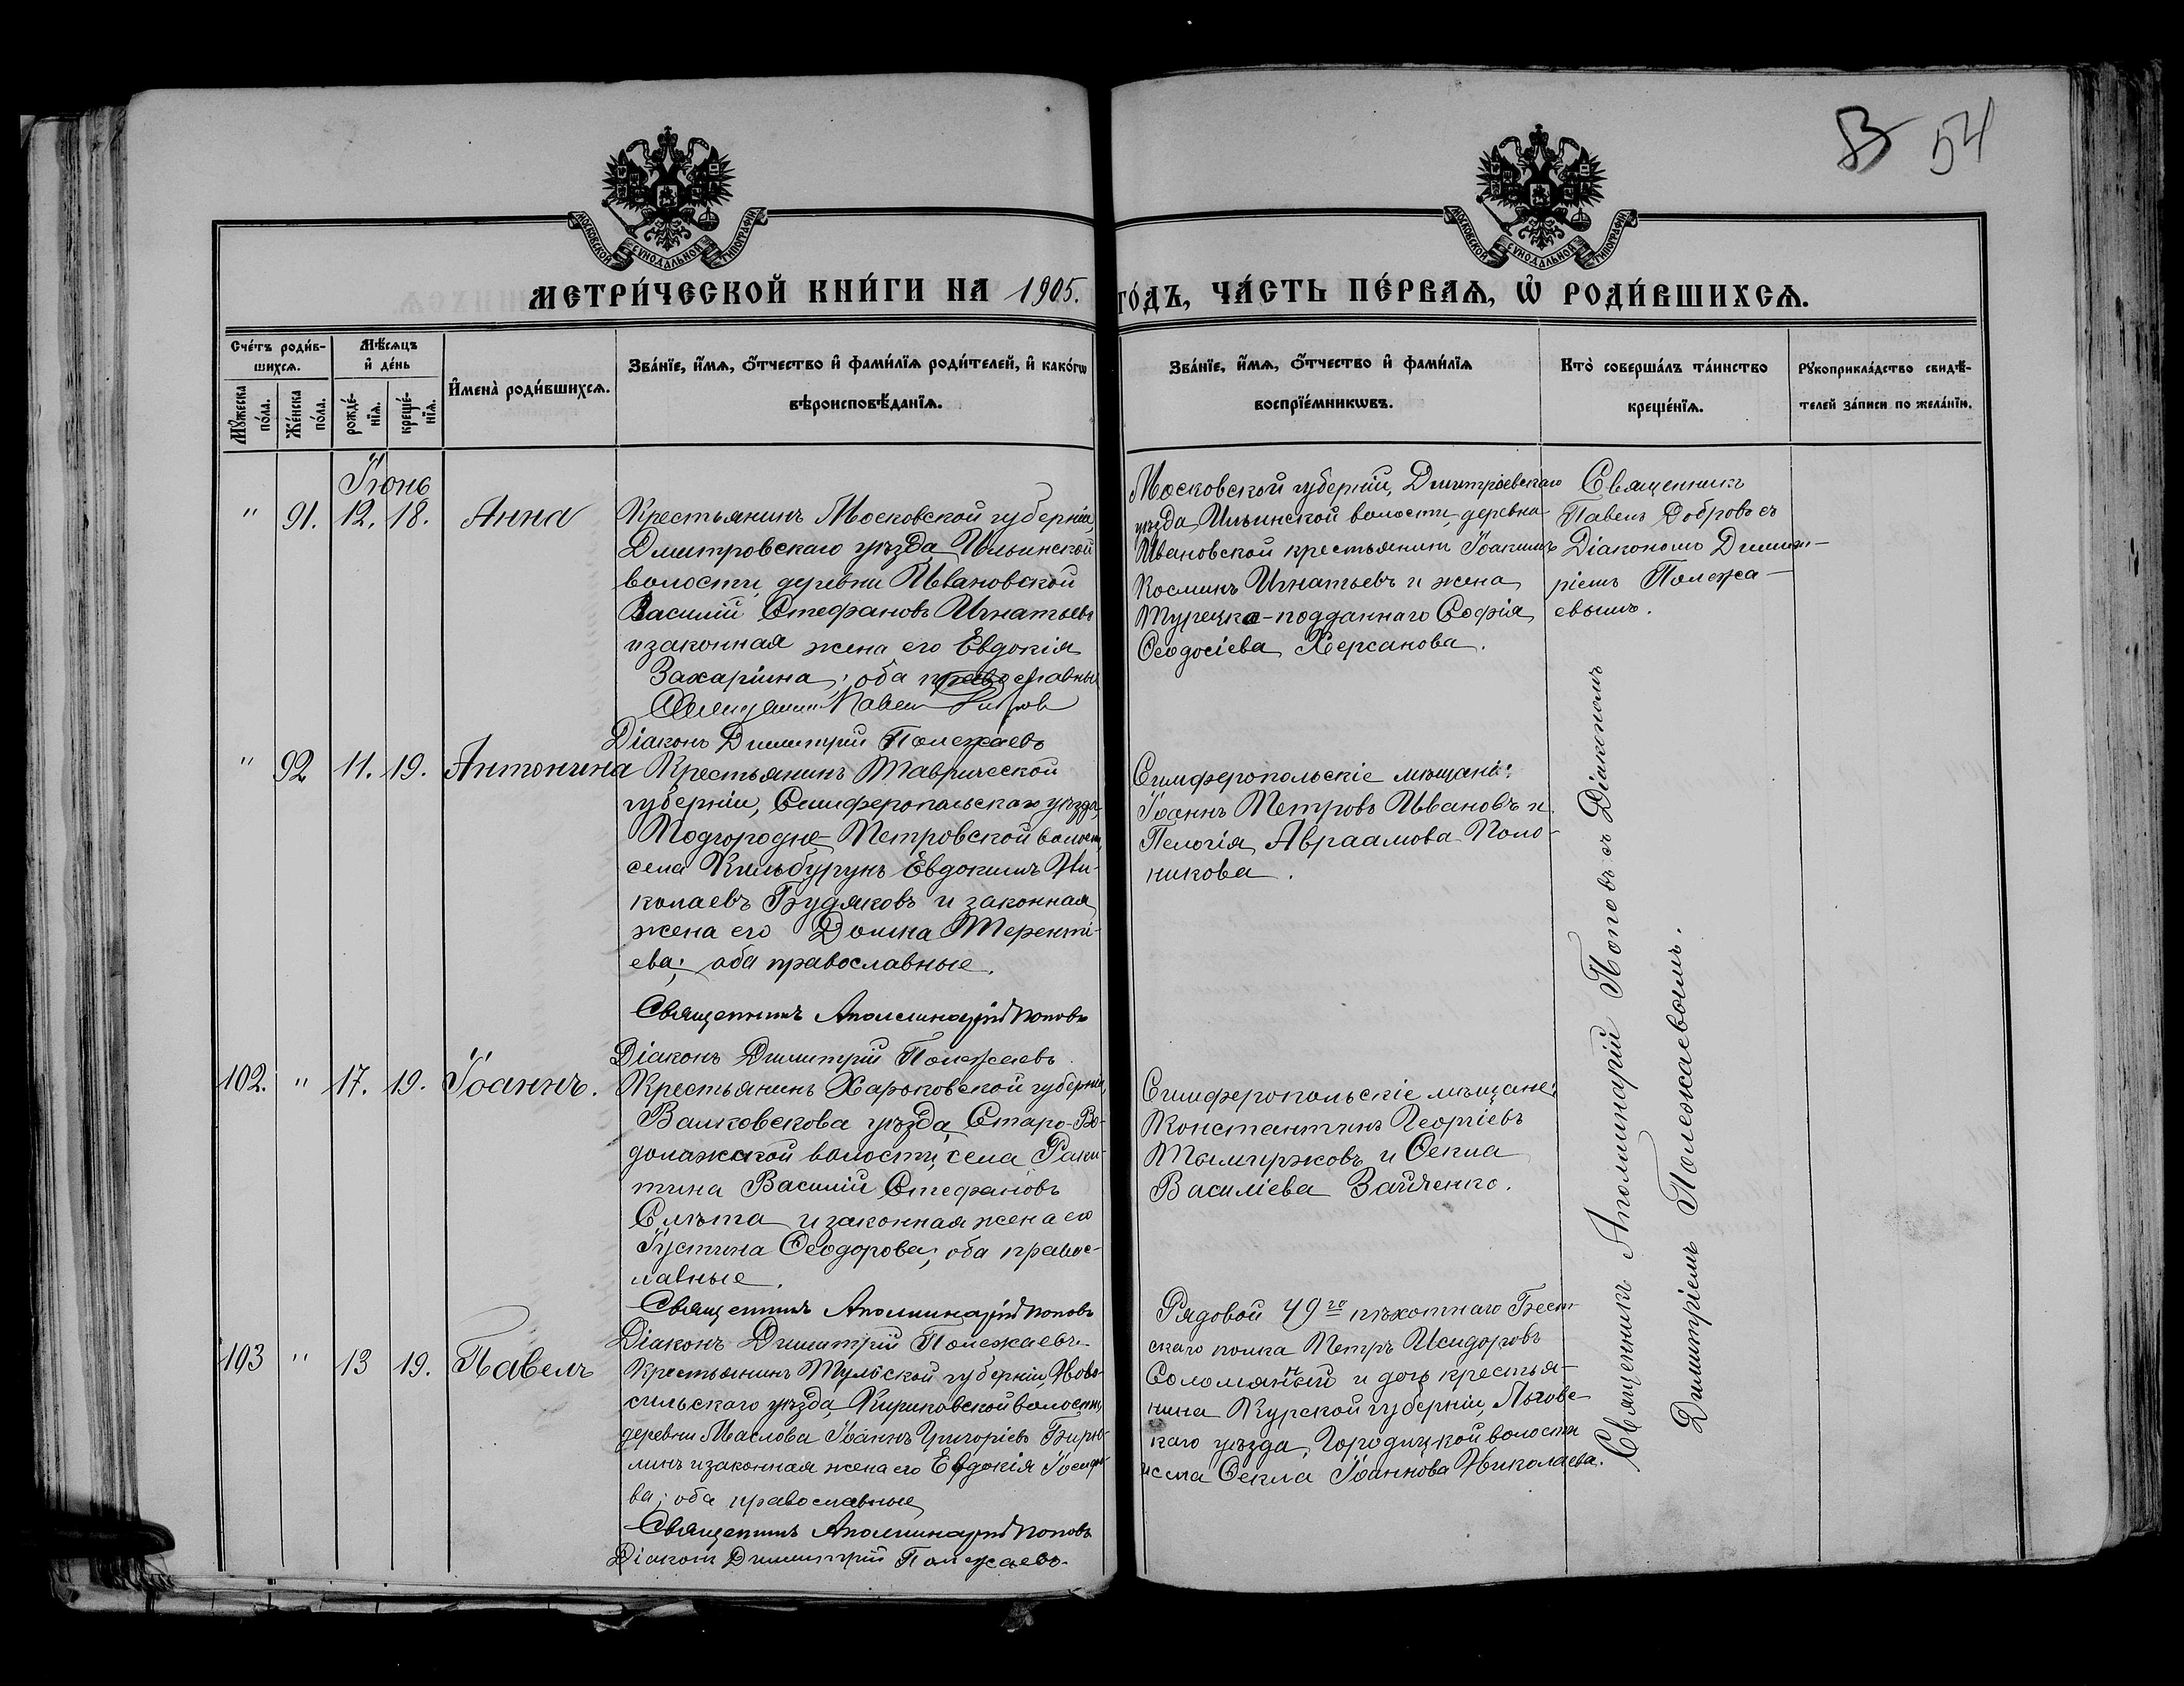 53 54
МОСКОВСКОЙ СѴНОДАЛЬНОЙ ТИПОГРАФІИ
МОСКОВСКОЙ СѴНОДАЛЬНОЙ ТИПОГРАФІИ
МЕТРИ́ЧЕСКОЙ КНИ́ГИ НА 1905. ГО́ДЪ, ЧА́СТЬ ПЕ́РВАѦ, Ѽ РОДИ́ВШИХСѦ.
Сче́тъ роди́в-
шихсѧ.
Мꙋжеска по́ла.
Же́нска по́ла.
Мѣ́сѧцъ и҆ де́нь
рожде́-
нїѧ.
креще́-
нїѧ.
И҆мена̀ роди́вшихсѧ.
Зва́нїе, и҆́мѧ, ѻ҆́тчество и҆ фами́лїѧ роди́телей, и҆ како́гѡ
вѣроисповѣ́данїѧ.
Зва́нїе, и҆́мѧ, ѻ҆́тчество и҆ фами́лїѧ
воспрїе́мникѡвъ.
Кто̀ соверша́лъ та́инство
креще́нїѧ.
Рꙋкоприкла́дство свидѣ́-
телей за́писи по жела́нїю.
Іюнь
" 91. 12. 18. Анна
Крестьянинъ Московской губерніи,
Дмитровскаго уѣзда Ильинской
волости, деревни Ивановской
Василій Стефановъ Игнатьевъ
и законная жена его Евдокія
Захаріина; оба православные
Священникъ Павелъ Добровъ
Діаконъ Димитрій Полежаевъ
Московской губерніи, Димитріевскаго
уѣзда Ильинской волости, деревни
Ивановской крестьянинъ Іоакимъ
Косминъ Игнатьевъ и жена
Турецко-подданнаго Софія
Ѳеодосіева Херсанова.
Священникъ
Павелъ Добровъ съ
Діакономъ Димит-
ріемъ Полежа-
евымъ.
" 92 11. 19. Антонина
Крестьянинъ Таврической
губерніи, Симферопольскаго уѣзда,
Подгородне-Петровской волости,
села Кильбурунъ Евдокимъ Ни-
колаевъ Будяковъ и законная
жена его Домна Теренті-
ева; оба православные.
Священникъ Аполлинарій Поповъ
Діаконъ Димитрій Полежаевъ
Симферопольскіе мѣщане:
Іоаннъ Петровъ Ивановъ и
Пелагія Авраамова Поло-
никова.
102. " 17. 19. Іоаннъ.
Крестьянинъ Харьковской губерніи,
Валковскова уѣзда, Старо-Во-
долажской волости, села Раки-
тина Василій Стефановъ
Слѣта и законная жена его
Іустина Ѳеодорова; оба правос-
лавные.
Священникъ Аполлинарій Поповъ
Діаконъ Димитрій Полежаевъ
Симферопольскіе мѣщане:
Константинъ Георгіевъ
Тымчржовъ и Ѳекла
Василіева Зайченко.
103 " 13 19. Павелъ
Крестьянинъ Тульской губерніи, Ново-
сильскаго уѣзда, Кириковской волости,
деревни Маслова Іоаннъ Григоріевъ Бирю-
линъ и законная жена его Евдокія Іосифо-
ва; оба православные
Священникъ Аполлинарій Поповъ
Діаконъ Димитрій Полежаевъ
Рядовой 49го пѣхотнаго Брест-
скаго полка Петръ Исидоровъ
Соломянный и дочь крестья-
нина Курской губерніи, Льговс-
каго уѣзда, Городицкой волости
и села Ѳекла Іоаннова Николаева.
Священникъ Аполлинарій Поповъ съ Діакономъ
Димитріемъ Полежаевымъ.